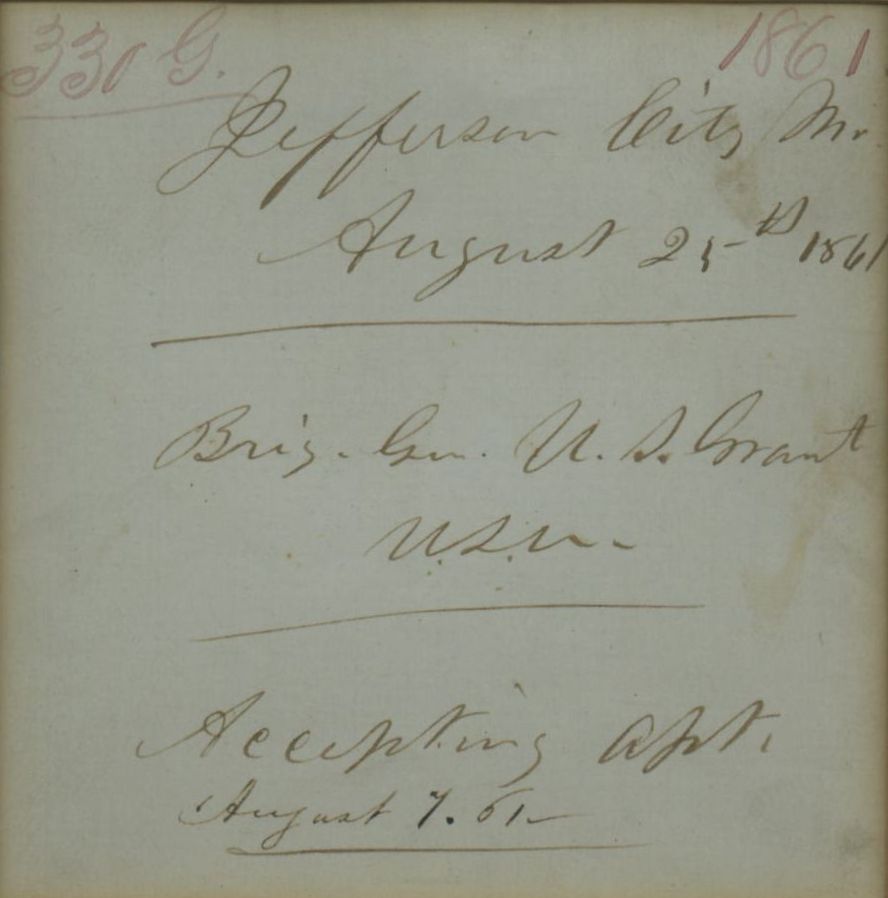 330 G. 1861
Jefferson City Mo.
August 25th 1861
Brig. Gen. U. S. Grant
U.S.A.
Accepting Apt.
August 7. 61